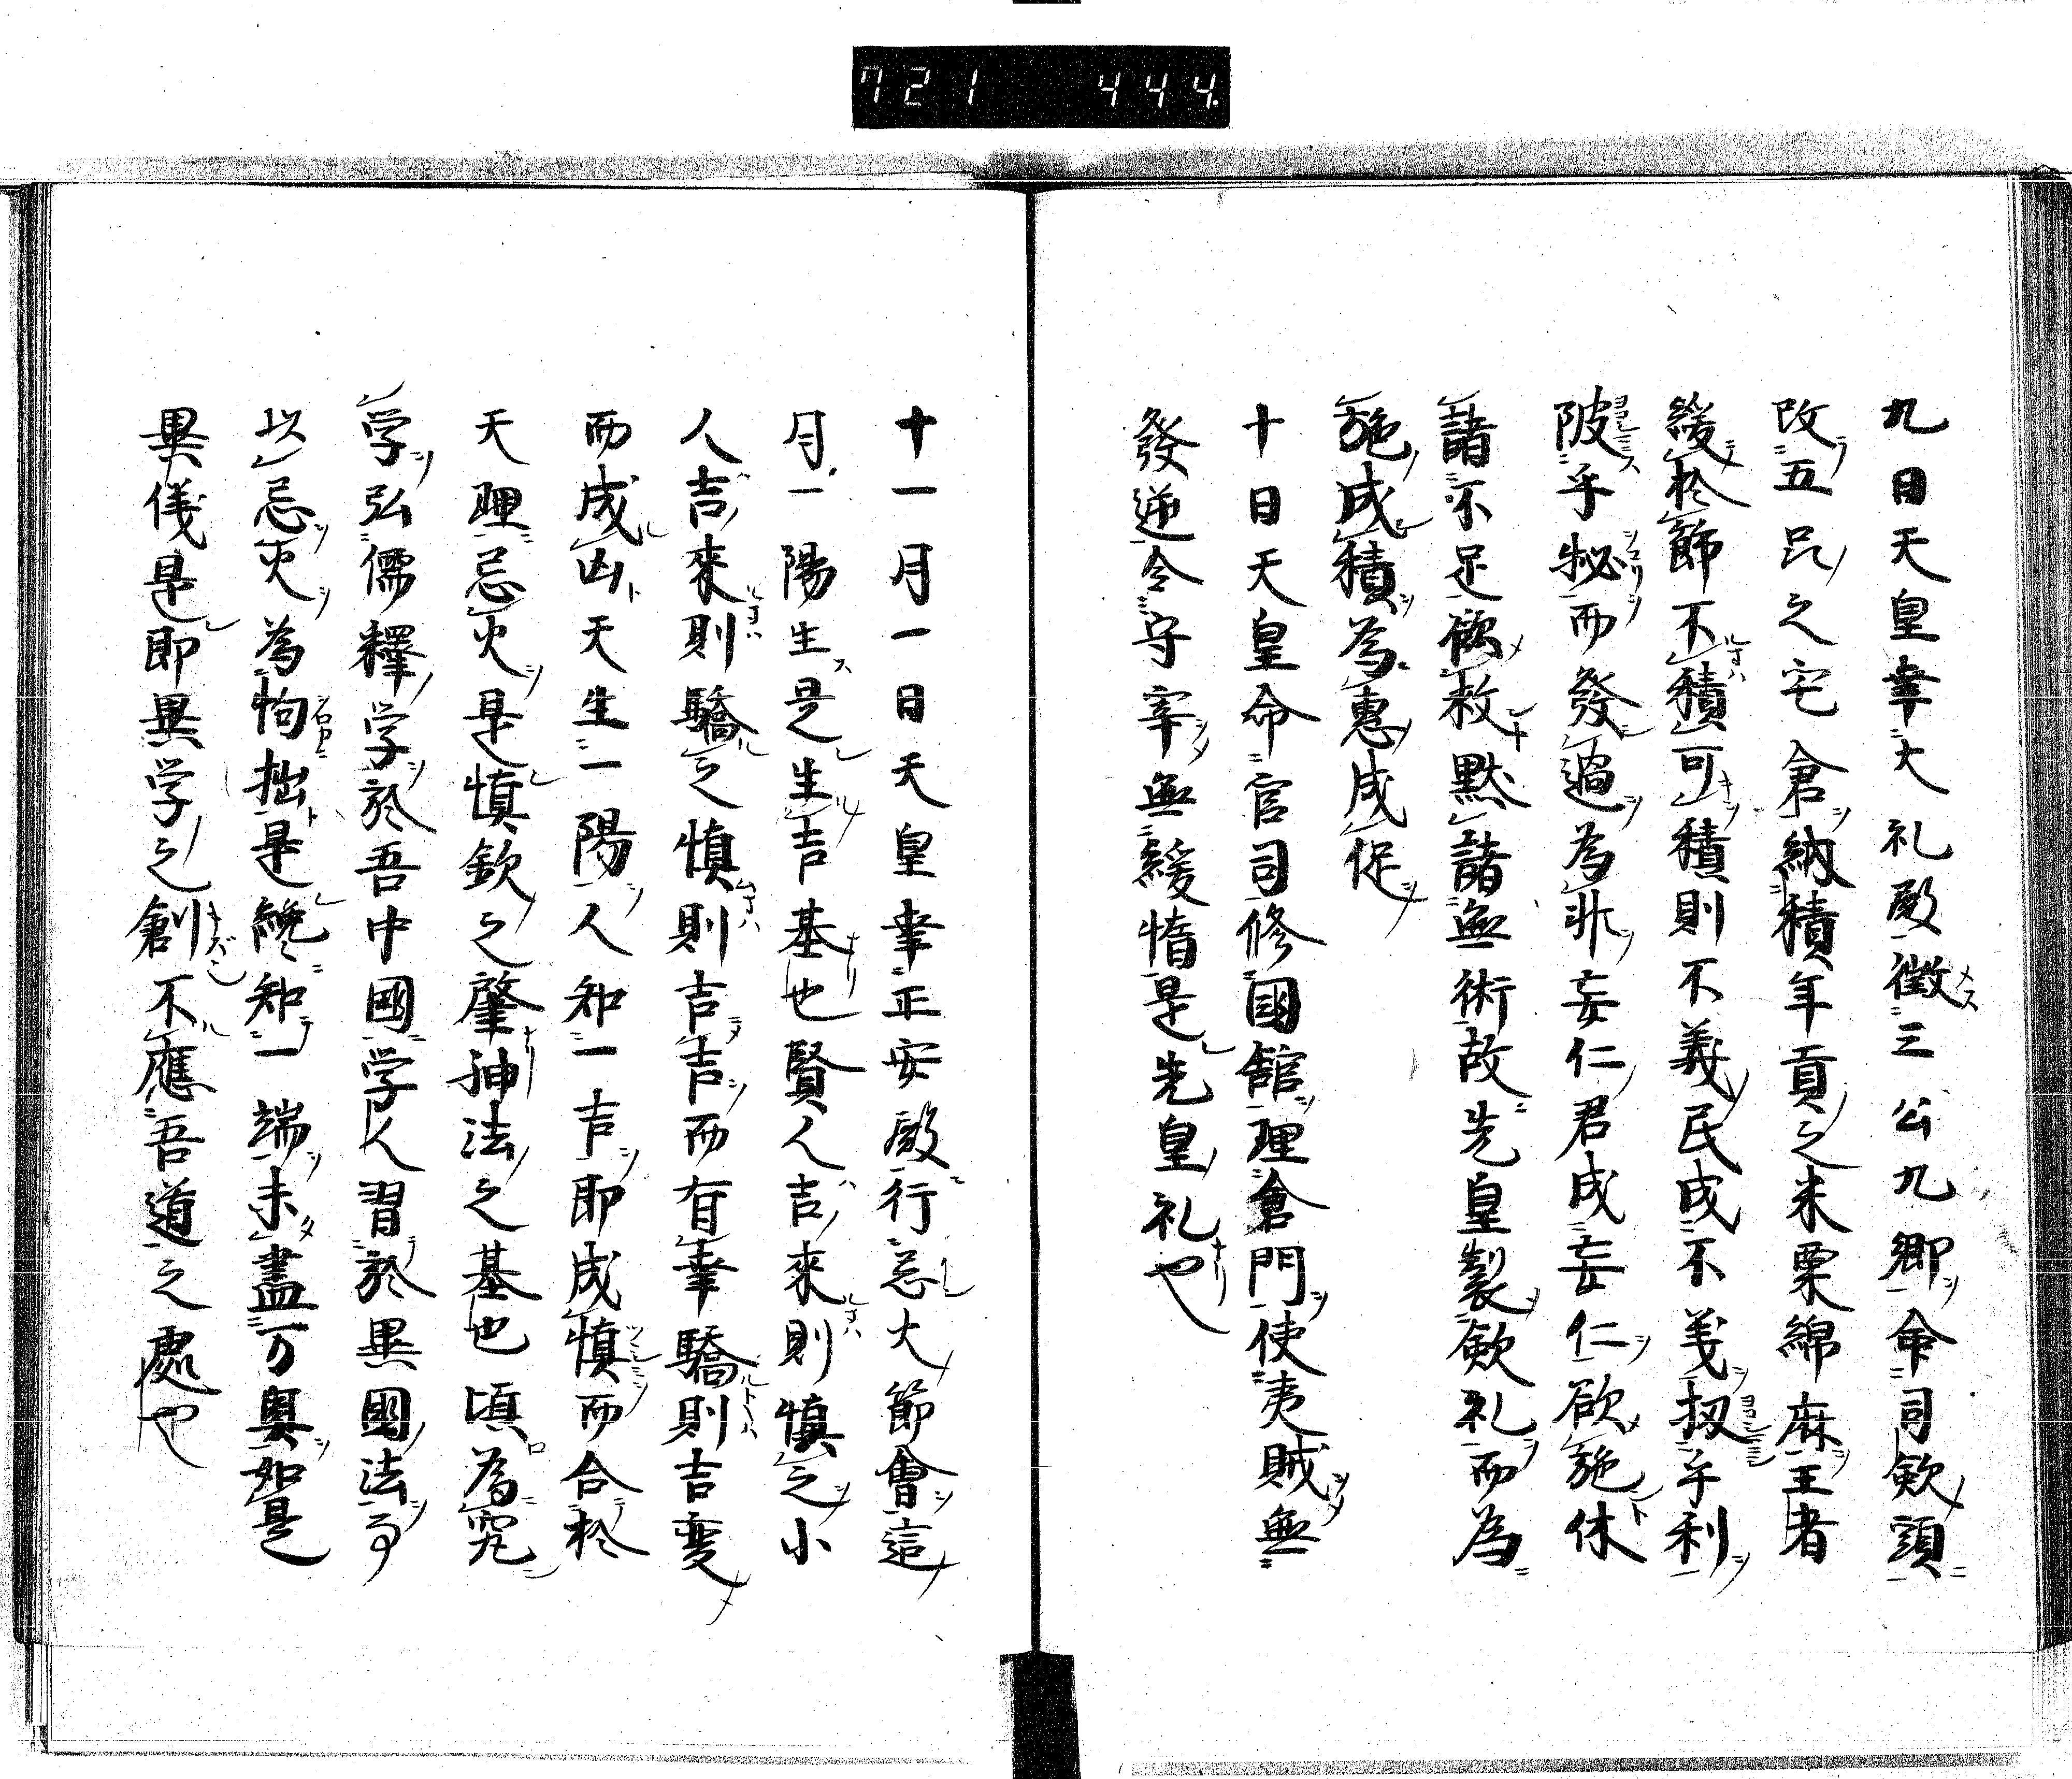 721 444.
九日天皇幸大礼殿徴三公九卿命司欽頭
改五品之宅倉納積年貢之米栗綿麻王者
緩於篩不積可積則不義民成不義扱乎利
陂乎柲而發過為非妄仁君成妄仁欲施休
諸不足 救黙諸無術故先皇製欽礼而為
施成積為惠成促
十日天皇命官司修國舘理倉門使夷賊無
發逆令守宰無緩惰是先皇礼也
十一月一日天皇幸正安殿行忌火節會這
月一陽生是生吉基也賢人吉來則慎之小
人吉來則驕之慎則吉吉而有幸驕則吉変
而成凶天生一陽人知一吉即成慎而合於
天理忌火是慎欽之肇神法之基也頃為究
学弘儒釋学於吾中國学人習於異國法
以忌火為拘拙是纔知一端未盡万奥如是
異儀是即異学之創不應吾道之處也